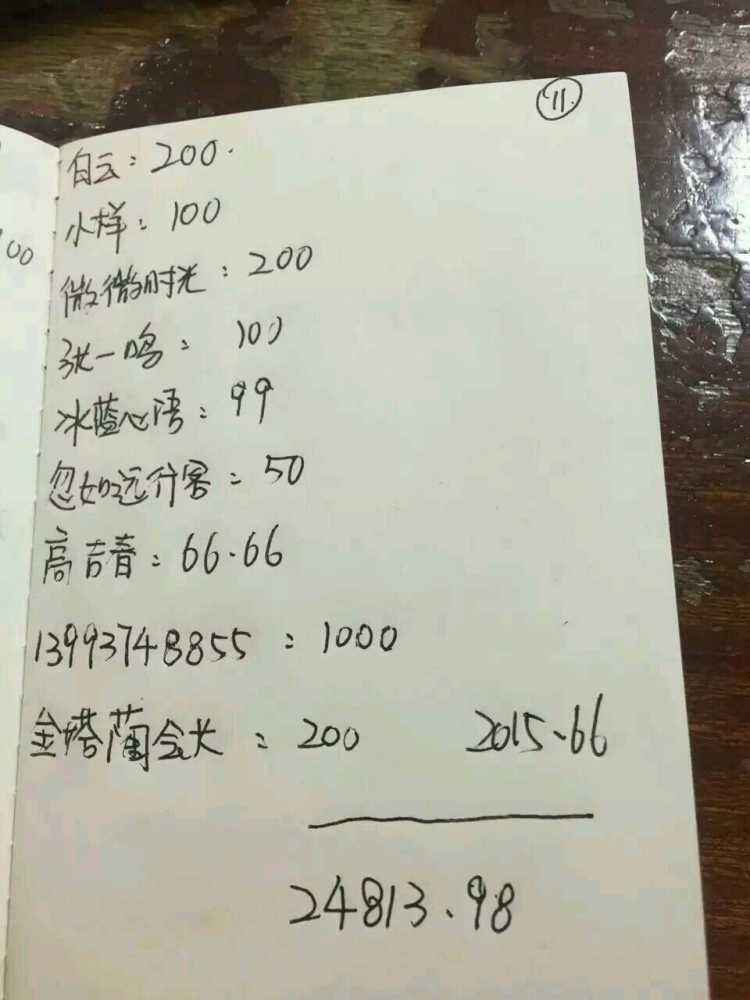 11.
100
白云：200.
小样：100
微微时光：200
张一鸣：100
冰蓝心语：99
忽如远行客：50
高吉春：66.66
13993748855：1000
金塔蔺会长：200 2015.66
24813.98